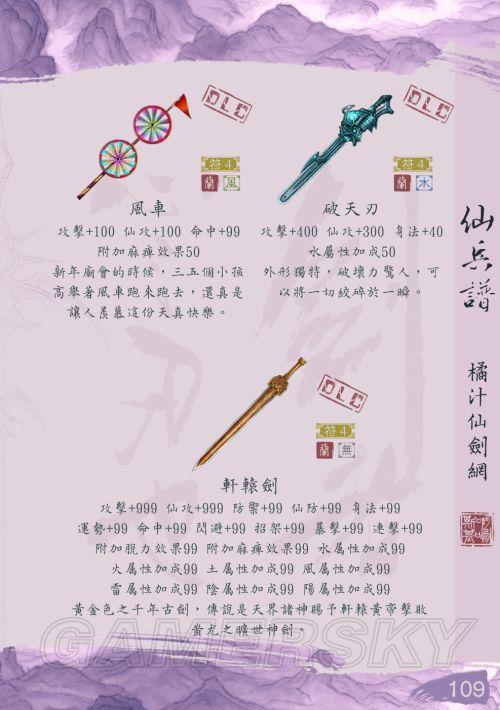 DLC
符4
蘭 風
風車
攻擊+100 仙攻+100 命中+99
附加麻痺效果50
新年廟會的時候，三五個小孩
高舉著風車跑來跑去，還真是
讓人羨慕這份天真快樂。
DLC
符4
蘭 水
破天刃
攻擊+400 仙攻+300 身法+40
水屬性加成50
外形獨特，破壞力驚人，可
以將一切絞碎於一瞬。
DLC
符4
蘭 無
軒轅劍
攻擊+999 仙攻+999 防禦+99 仙防+99 身法+99
運勢+99 命中+99 閃避+99 招架+99 暴擊+99 連擊+99
附加脫力效果99 附加麻痺效果99 水屬性加成99
火屬性加成99 土屬性加成99 風屬性加成99
雷屬性加成99 陰屬性加成99 陽屬性加成99
黃金色之千年古劍，傳說是天界諸神賜予軒轅黃帝擊敗
蚩尤之曠世神劍。
仙兵譜
橘汁仙劍網
GAMERSKY
109